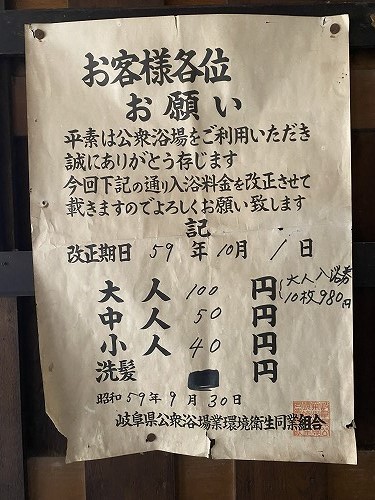 お客様各位
お願い
平素は公衆浴場をご利用いただき
誠にありがとう存じます
今回下記の通り入浴料金を改正させて
載きますのでよろしくお願い致します
記
改正期日 59年10月1日
大人 100 円 大人入浴券
10枚980円
中人 50 円
小人 40 円
洗髪 円
昭和59年9月30日
岐阜県公衆浴場業環境衛生同業組合